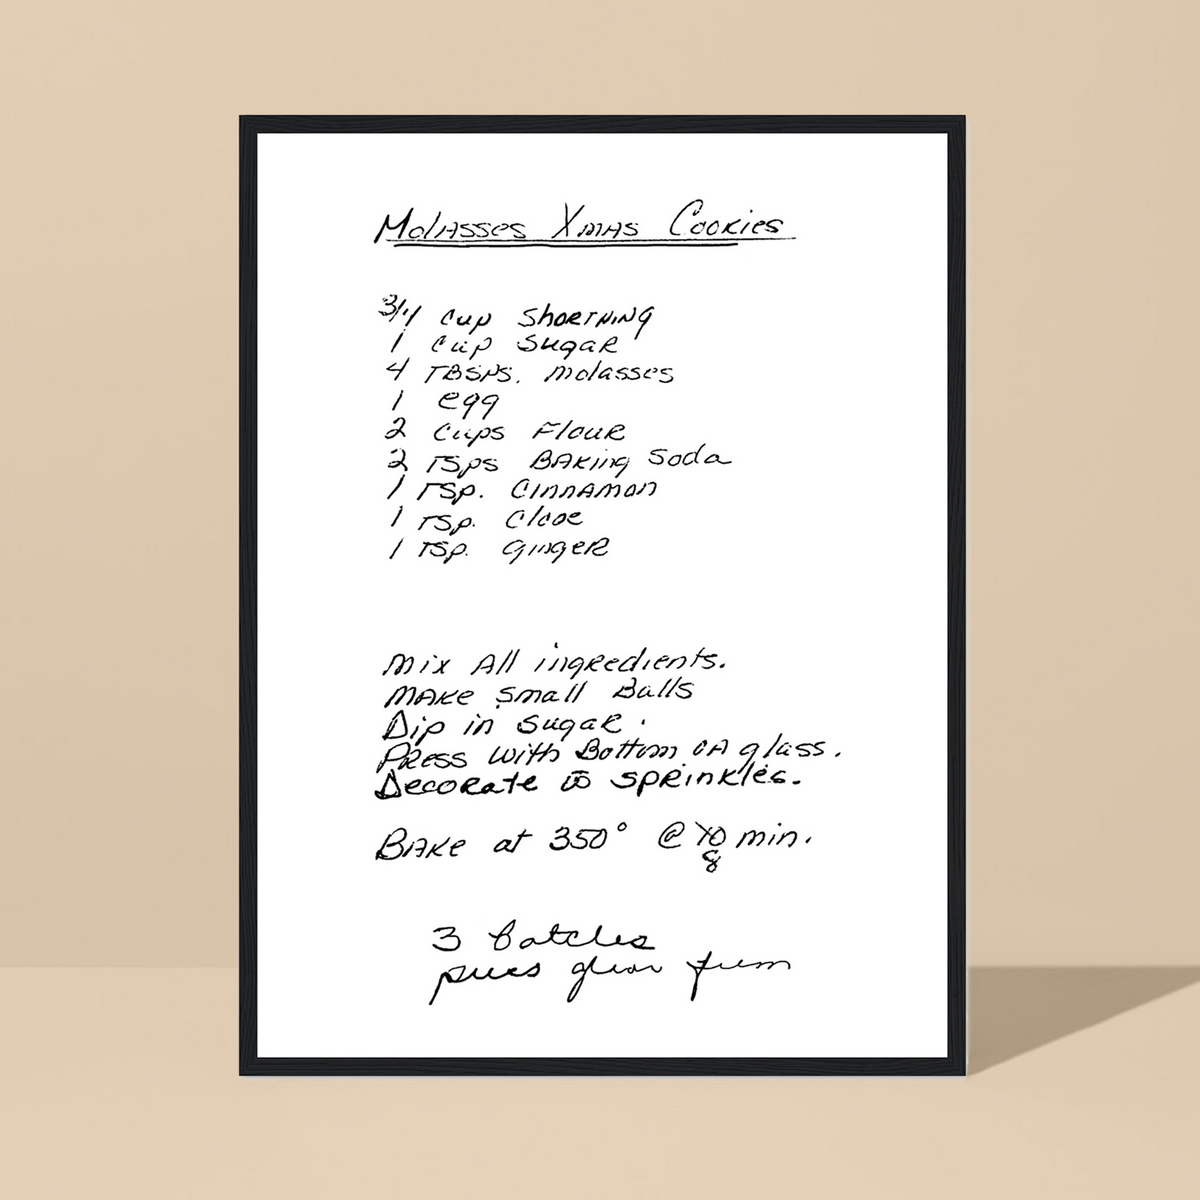 Molasses Xmas Cookies
3/4 cup Shortning
1 cup Sugar
4 TBSPS. molasses
1 egg
2 cups Flour
2 Tsps Baking Soda
1 Tsp. Cinnamon
1 Tsp. Clove
1 Tsp. Ginger
Mix All ingredients.
Make Small Balls
Dip in sugar.
Press with Bottom on glass.
Decorate w̄ sprinkles.
Bake at 350° @ 10 min.
8
3 batches